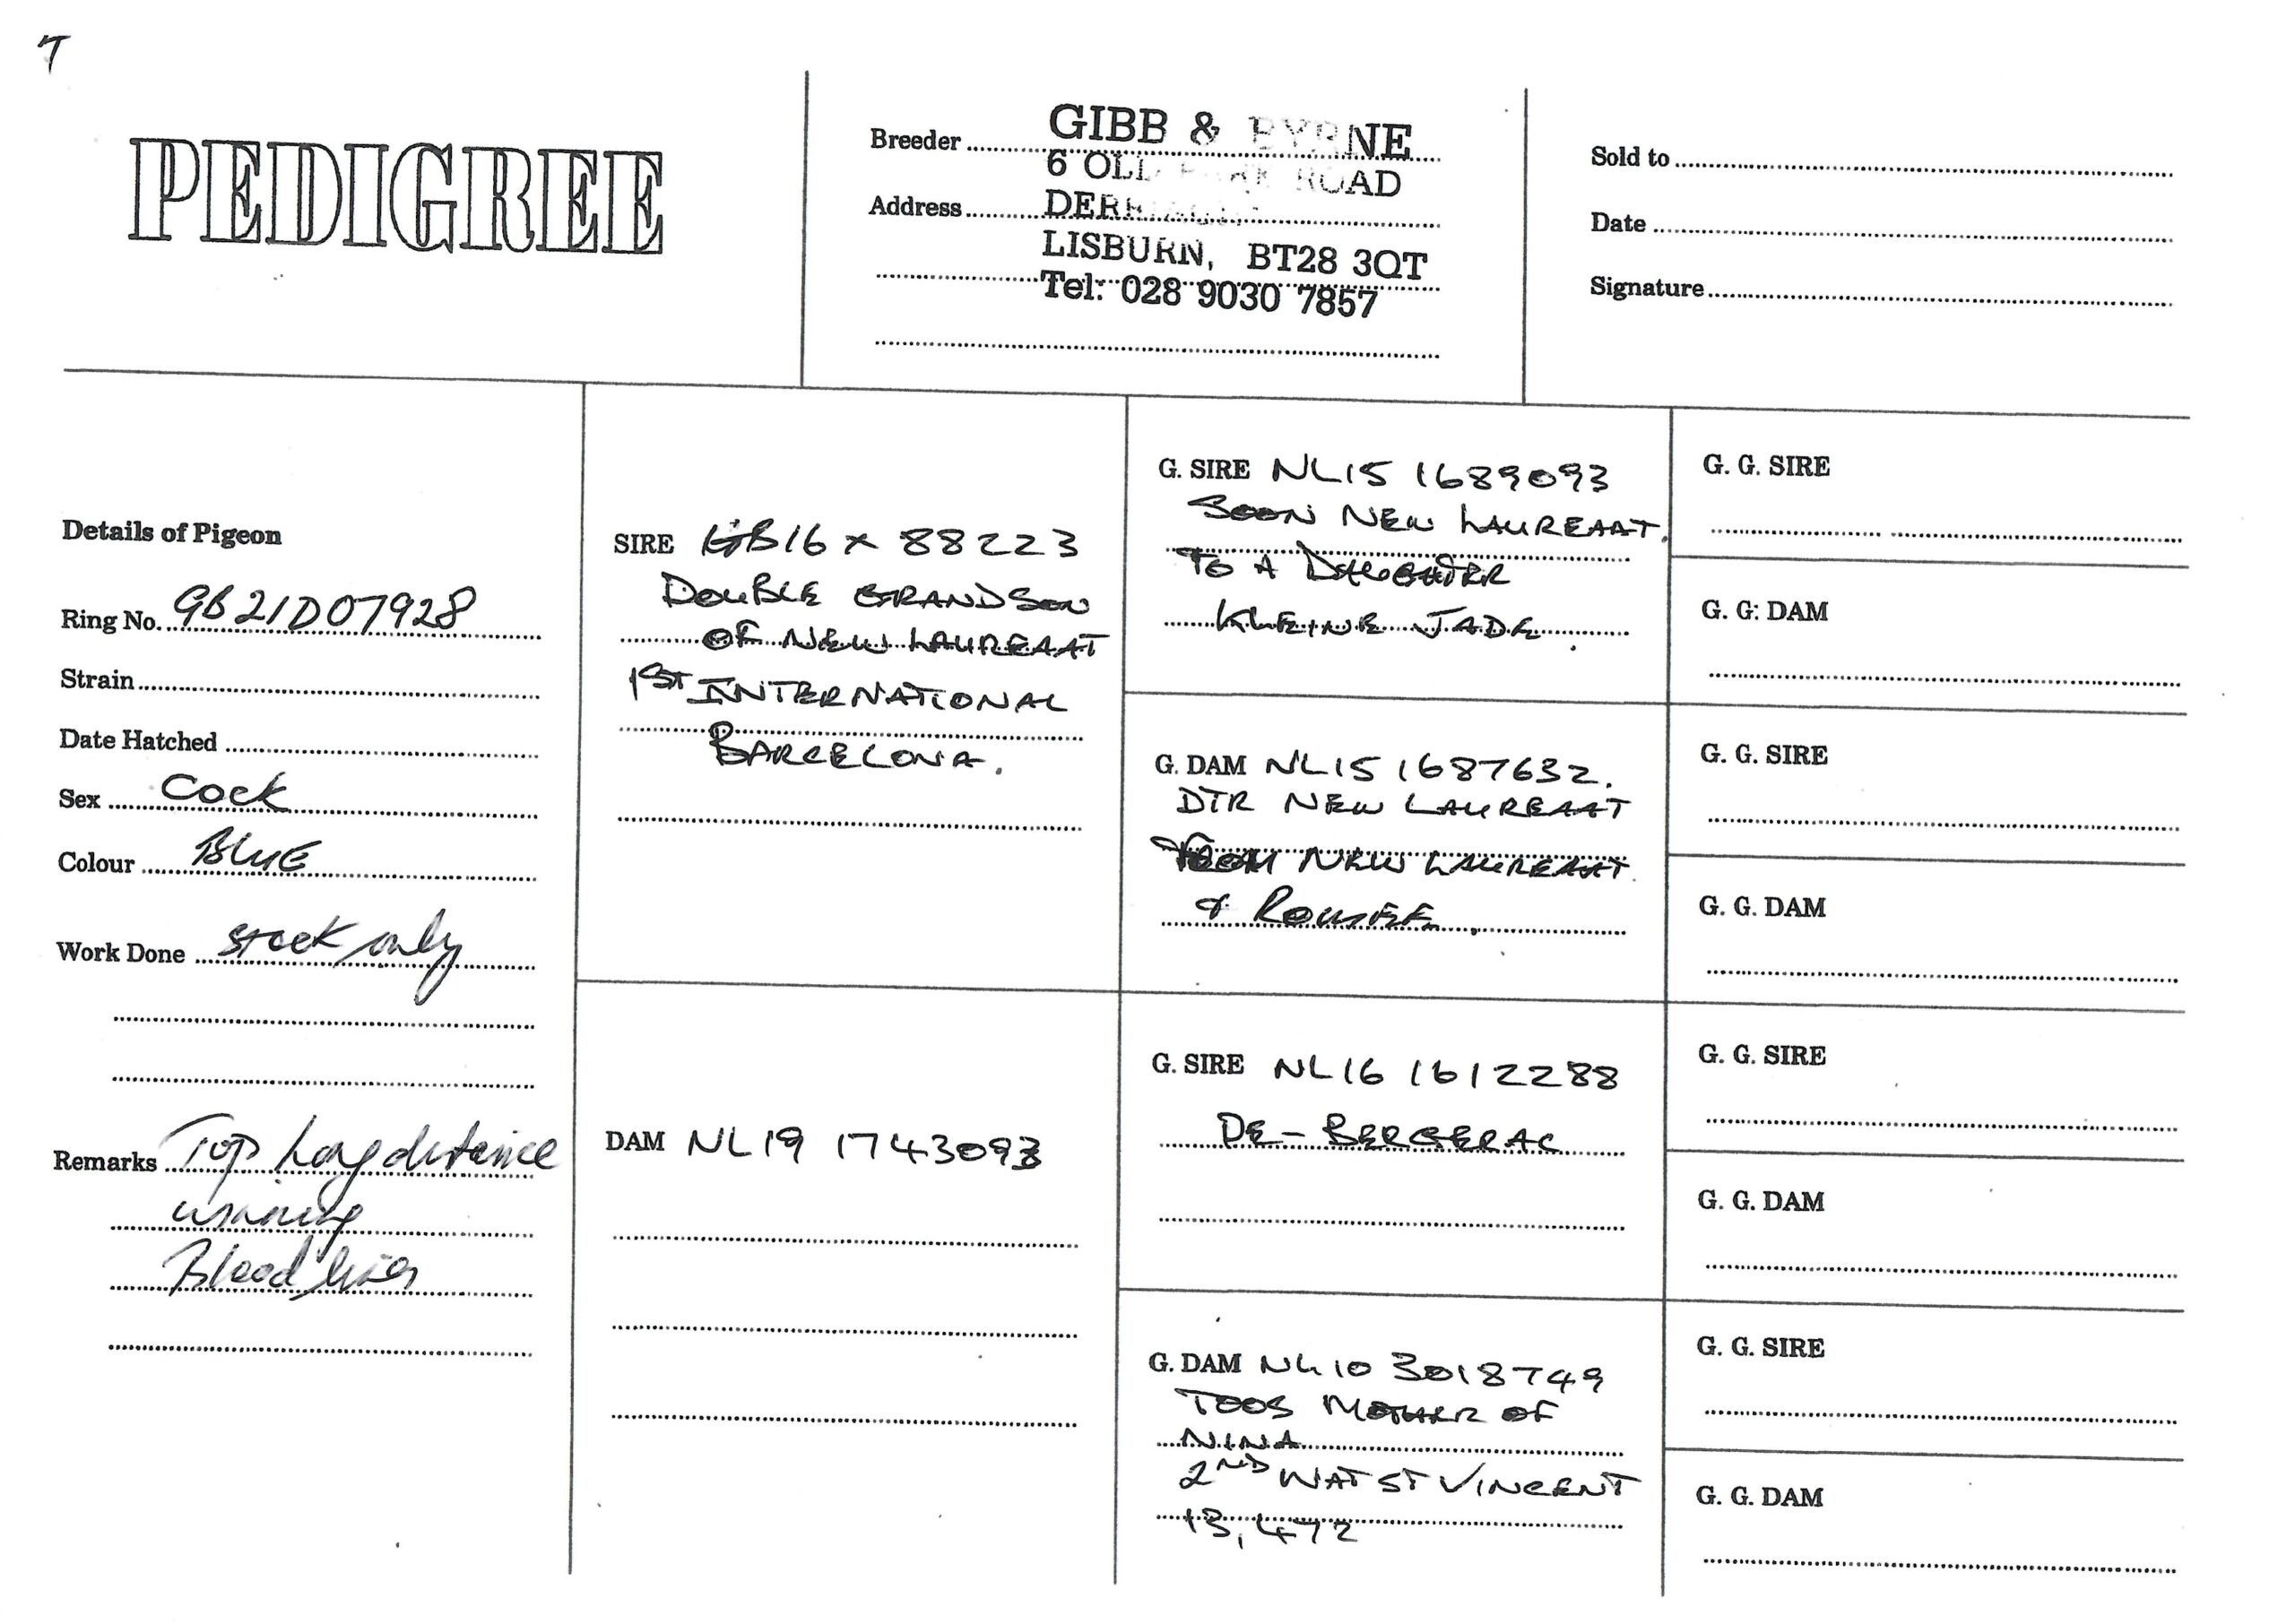 7
PEDIGREE
Breeder GIBB & BYRNE
6 OLD PARK ROAD
Address
LISBURN, BT28 3QT
Tel: 028 9030 7857
Sold to
Date
Signature
Details of Pigeon
Ring No. GB21D07928
Strain
Date Hatched
Sex Cock
Colour BLUE
Work Done stock only
Remarks Top Long distance
winning
Blood lines
SIRE GB16 X 88223
DOUBLE GRANDSON
OF NEW LAUREAAT
1ST INTERNATIONAL
BARCELONA.
DAM NL19 1743093
G. SIRE NL15 1689093
SOON NEW LAUREAAT.
TO A DAUGHTER
KLEINE JADE.
G. DAM NL15 1687632.
DTR NEW LAUREAAT
FROM NEW LAUREAAT
&
G. SIRE NL16 1612288
DE-BERGERAC
G. DAM NL10 3018749
TOOS MOTHER OF
NINA
2ND NAT ST VINCENT
13,472
G. G. SIRE
G. G: DAM
G. G. SIRE
G. G. DAM
G. G. SIRE
G. G. DAM
G. G. SIRE
G. G. DAM